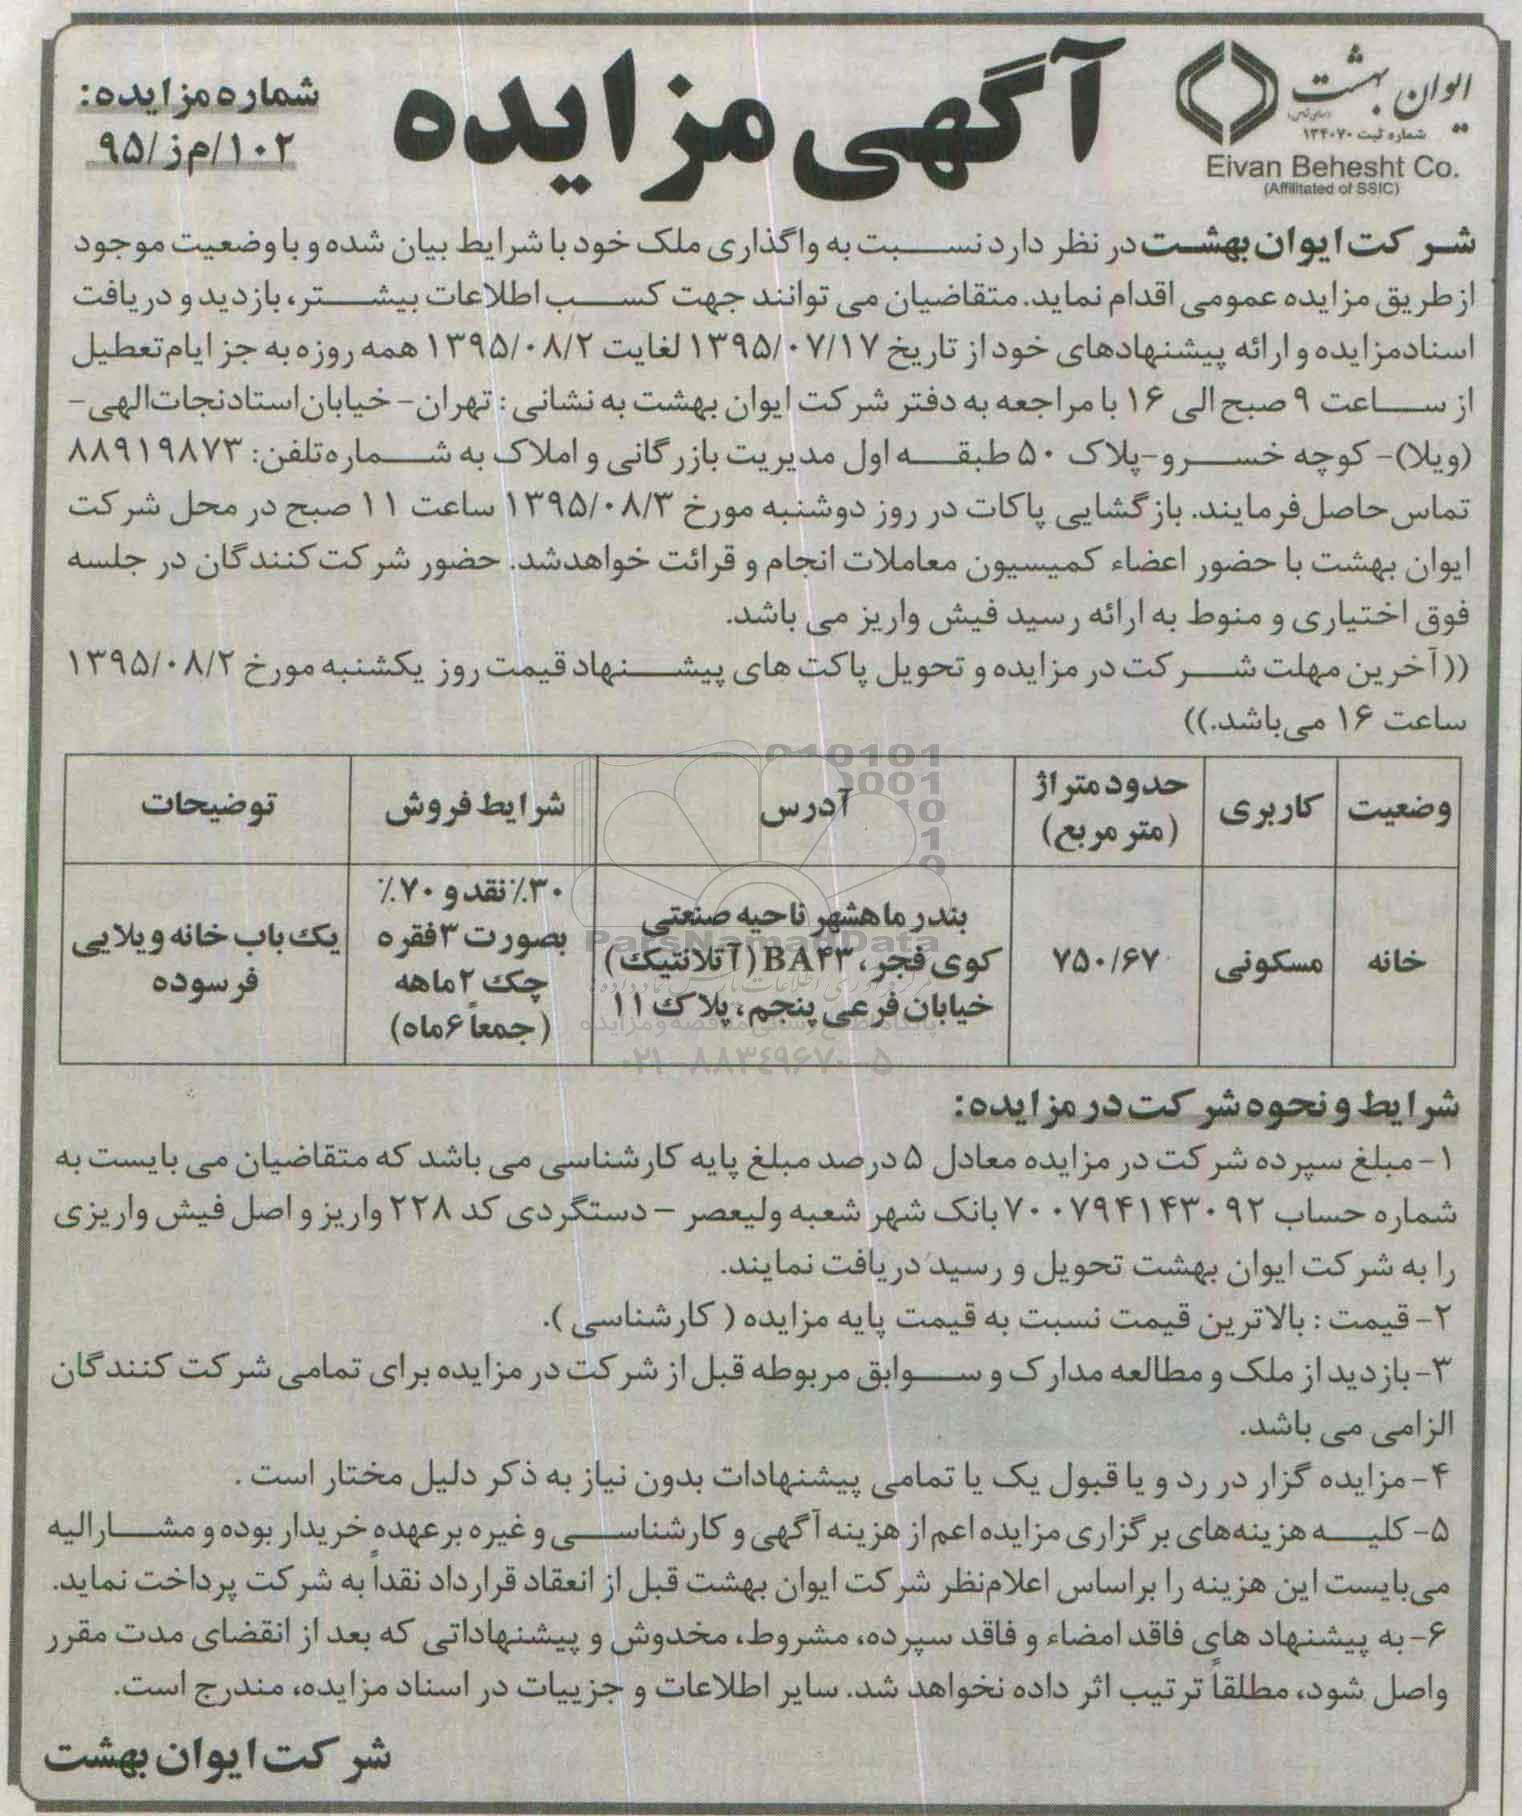 ایوان بهشت
(سهامی خاص)
شماره ثبت ۱۳۴۰۷۰
Eivan Behesht Co.
(Affilitated of SSIC)
آگهی مزایده
شماره مزایده:
۱۰۲/م ز/۹۵
شرکت ایوان بهشت در نظر دارد نسبت به واگذاری ملک خود با شرایط بیان شده و با وضعیت موجود
از طریق مزایده عمومی اقدام نماید. متقاضیان می توانند جهت کسب اطلاعات بیشتر، بازدید و دریافت
اسناد مزایده و ارائه پیشنهادهای خود از تاریخ ۱۳۹۵/۰۷/۱۷ لغایت ۱۳۹۵/۰۸/۲ همه روزه به جز ایام تعطیل
از ساعت ۹ صبح الی ۱۶ با مراجعه به دفتر شرکت ایوان بهشت به نشانی : تهران- خیابان استاد نجات الهی-
(ویلا)- کوچه خسرو-پلاک ۵۰ طبقه اول مدیریت بازرگانی و املاک به شماره تلفن: ۸۸۹۱۹۸۷۳
تماس حاصل فرمایند. بازگشایی پاکات در روز دوشنبه مورخ ۱۳۹۵/۰۸/۳ ساعت ۱۱ صبح در محل شرکت
ایوان بهشت با حضور اعضاء کمیسیون معاملات انجام و قرائت خواهد شد. حضور شرکت کنندگان در جلسه
فوق اختیاری و منوط به ارائه رسید فیش واریز می باشد.
((آخرین مهلت شرکت در مزایده و تحویل پاکت های پیشنهاد قیمت روز یکشنبه مورخ ۱۳۹۵/۰۸/۲
ساعت ۱۶ می باشد.))
وضعیت کاربری حدود متراژ (متر مربع) آدرس شرایط فروش توضیحات
خانه مسکونی ۷۵۰/۶۷
بندر ماهشهر ناحیه صنعتی
کوی فجر، BA۴۳ (آتلانتیک)
خیابان فرعی پنجم، پلاک ۱۱
۳۰٪ نقد و ۷۰٪
بصورت ۳ فقره
چک ۲ ماهه
(جمعاً ۶ ماه)
یک باب خانه ویلایی
فرسوده
ParsNamadData
۰۲۱-۸۸۳۴۹۶۷۰-۵
شرایط و نحوه شرکت در مزایده:
۱- مبلغ سپرده شرکت در مزایده معادل ۵ درصد مبلغ پایه کارشناسی می باشد که متقاضیان می بایست به
شماره حساب ۷۰۰۷۹۴۱۴۳۰۹۲ بانک شهر شعبه ولیعصر - دستگردی کد ۲۲۸ واریز و اصل فیش واریزی
را به شرکت ایوان بهشت تحویل و رسید دریافت نمایند.
۲- قیمت : بالاترین قیمت نسبت به قیمت پایه مزایده ( کارشناسی ).
۳- بازدید از ملک و مطالعه مدارک و سوابق مربوطه قبل از شرکت در مزایده برای تمامی شرکت کنندگان
الزامی می باشد.
۴- مزایده گزار در رد و یا قبول یک یا تمامی پیشنهادات بدون نیاز به ذکر دلیل مختار است .
۵- کلیه هزینه‌های برگزاری مزایده اعم از هزینه آگهی و کارشناسی و غیره بر عهده خریدار بوده و مشارالیه
می‌بایست این هزینه را براساس اعلام نظر شرکت ایوان بهشت قبل از انعقاد قرارداد نقداً به شرکت پرداخت نماید.
۶- به پیشنهاد های فاقد امضاء و فاقد سپرده، مشروط، مخدوش و پیشنهاداتی که بعد از انقضای مدت مقرر
واصل شود، مطلقاً ترتیب اثر داده نخواهد شد. سایر اطلاعات و جزییات در اسناد مزایده، مندرج است.
شرکت ایوان بهشت